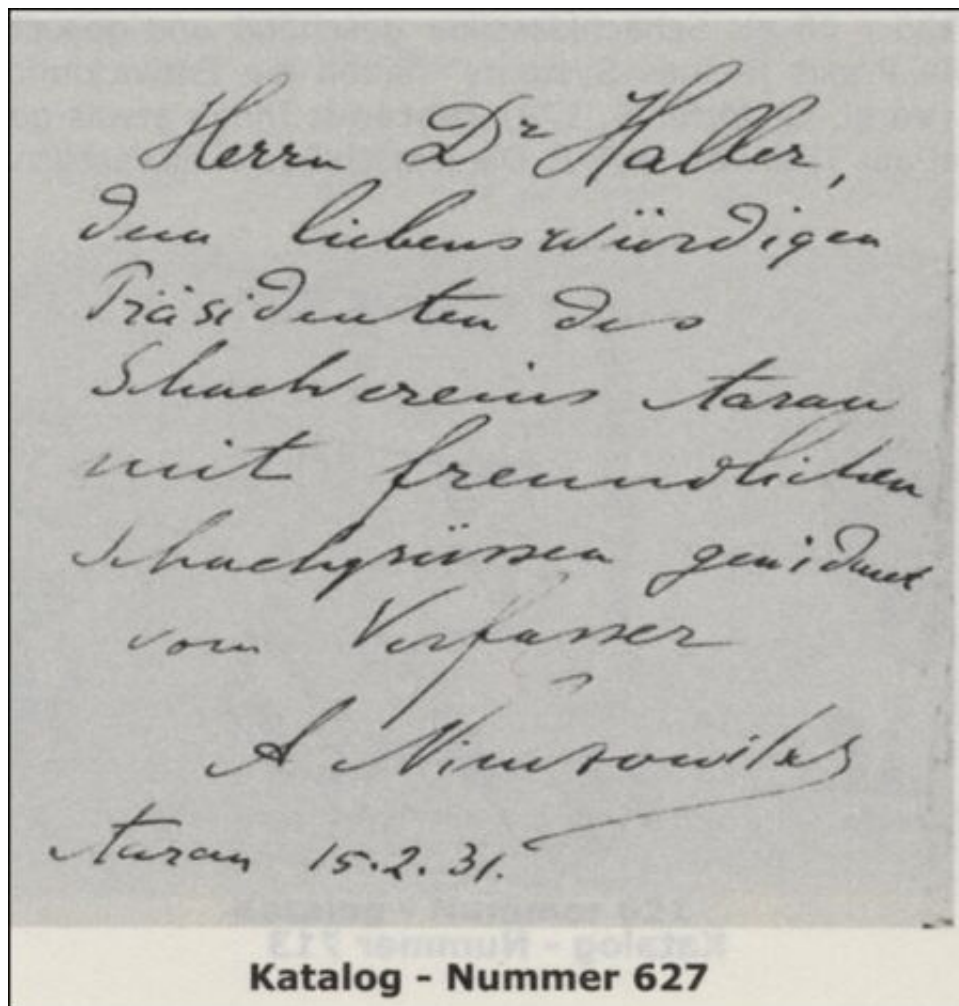 Herrn Dr Haller,
dem liebenswürdigen
Präsidenten des
Schachvereins Aarau
mit freundlichen
Schachgrüssen gewidmet
vom Verfasser
A Nimzowitsch
Aarau 15.2.31.
Katalog - Nummer 713
Katalog - Nummer 627